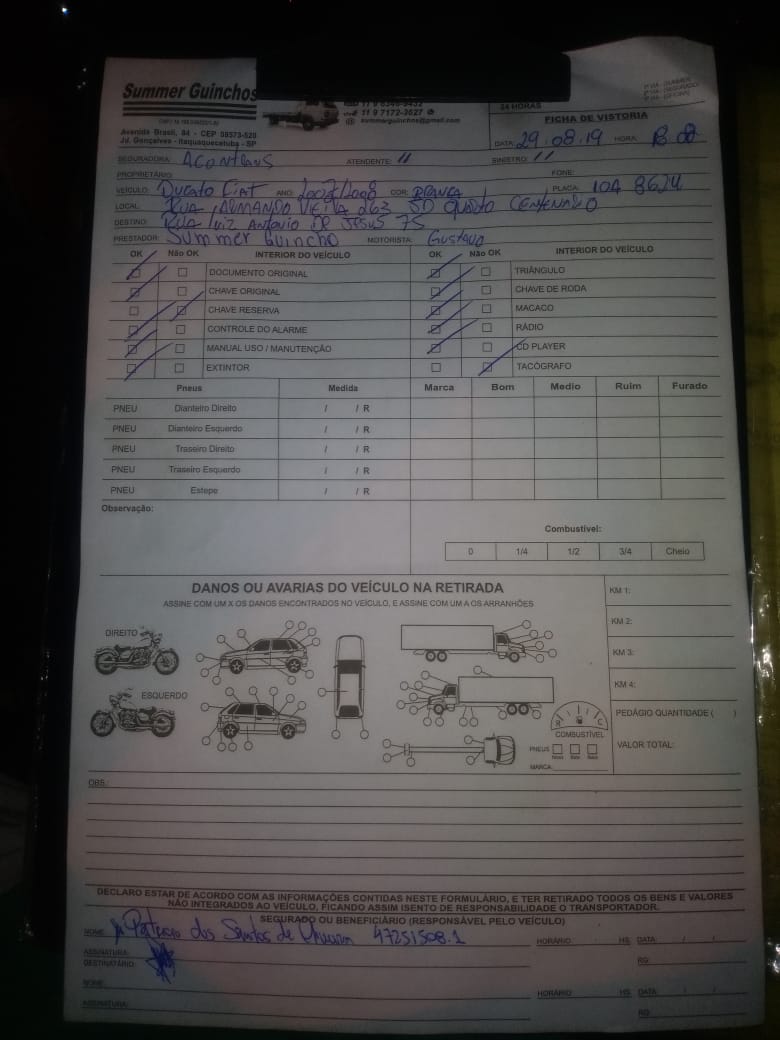 Summer Guinchos
11 9 6346-9432
11 9 7172-3627
summerguinchos@gmail.com
24 HORAS
Avenida Brasil, 84 - CEP 08573-520
Jd. Gonçalves - Itaquaquecetuba - SP
FICHA DE VISTORIA
DATA: 29.08.19 HORA:
SEGURADORA: ATENDENTE: 11 SINISTRO: 11
PROPRIETÁRIO: FONE:
VEÍCULO: Ducato Fiat ANO: 2007/2008 COR: BRANCA PLACA: 8624
LOCAL: RUA ARMANDO VIEIRA 263 JD QUARTO CENTENÁRIO
DESTINO: RUA Luiz ANTONIO DE JESUS 75
PRESTADOR: Summer Guincho MOTORISTA: Gustavo
OK Não OK INTERIOR DO VEÍCULO OK Não OK INTERIOR DO VEÍCULO
DOCUMENTO ORIGINAL TRIÂNGULO
CHAVE ORIGINAL CHAVE DE RODA
CHAVE RESERVA MACACO
CONTROLE DO ALARME RÁDIO
MANUAL USO / MANUTENÇÃO CD PLAYER
EXTINTOR TACÓGRAFO
Pneus Medida Marca Bom Medio Ruim Furado
PNEU Dianteiro Direito / / R
PNEU Dianteiro Esquerdo / / R
PNEU Traseiro Direito / / R
PNEU Traseiro Esquerdo / / R
PNEU Estepe / / R
Observação:
Combustível:
0 1/4 1/2 3/4 Cheio
DANOS OU AVARIAS DO VEÍCULO NA RETIRADA
ASSINE COM UM X OS DANOS ENCONTRADOS NO VEÍCULO, E ASSINE COM UM A OS ARRANHÕES
KM 1:
KM 2:
KM 3:
KM 4:
DIREITO
ESQUERDO
PEDÁGIO QUANTIDADE ( )
COMBUSTÍVEL
VALOR TOTAL:
PNEUS
MARCA:
OBS.:
DECLARO ESTAR DE ACORDO COM AS INFORMAÇÕES CONTIDAS NESTE FORMULÁRIO, E TER RETIRADO TODOS OS BENS E VALORES
NÃO INTEGRADOS AO VEÍCULO, FICANDO ASSIM ISENTO DE RESPONSABILIDADE O TRANSPORTADOR.
SEGURADO OU BENEFICIÁRIO (RESPONSÁVEL PELO VEÍCULO)
NOME: dos Santos de 47251508.1 HORÁRIO HS. DATA: / /
ASSINATURA: RG:
DESTINATÁRIO:
NOME: HORÁRIO HS. DATA: / /
ASSINATURA: RG: